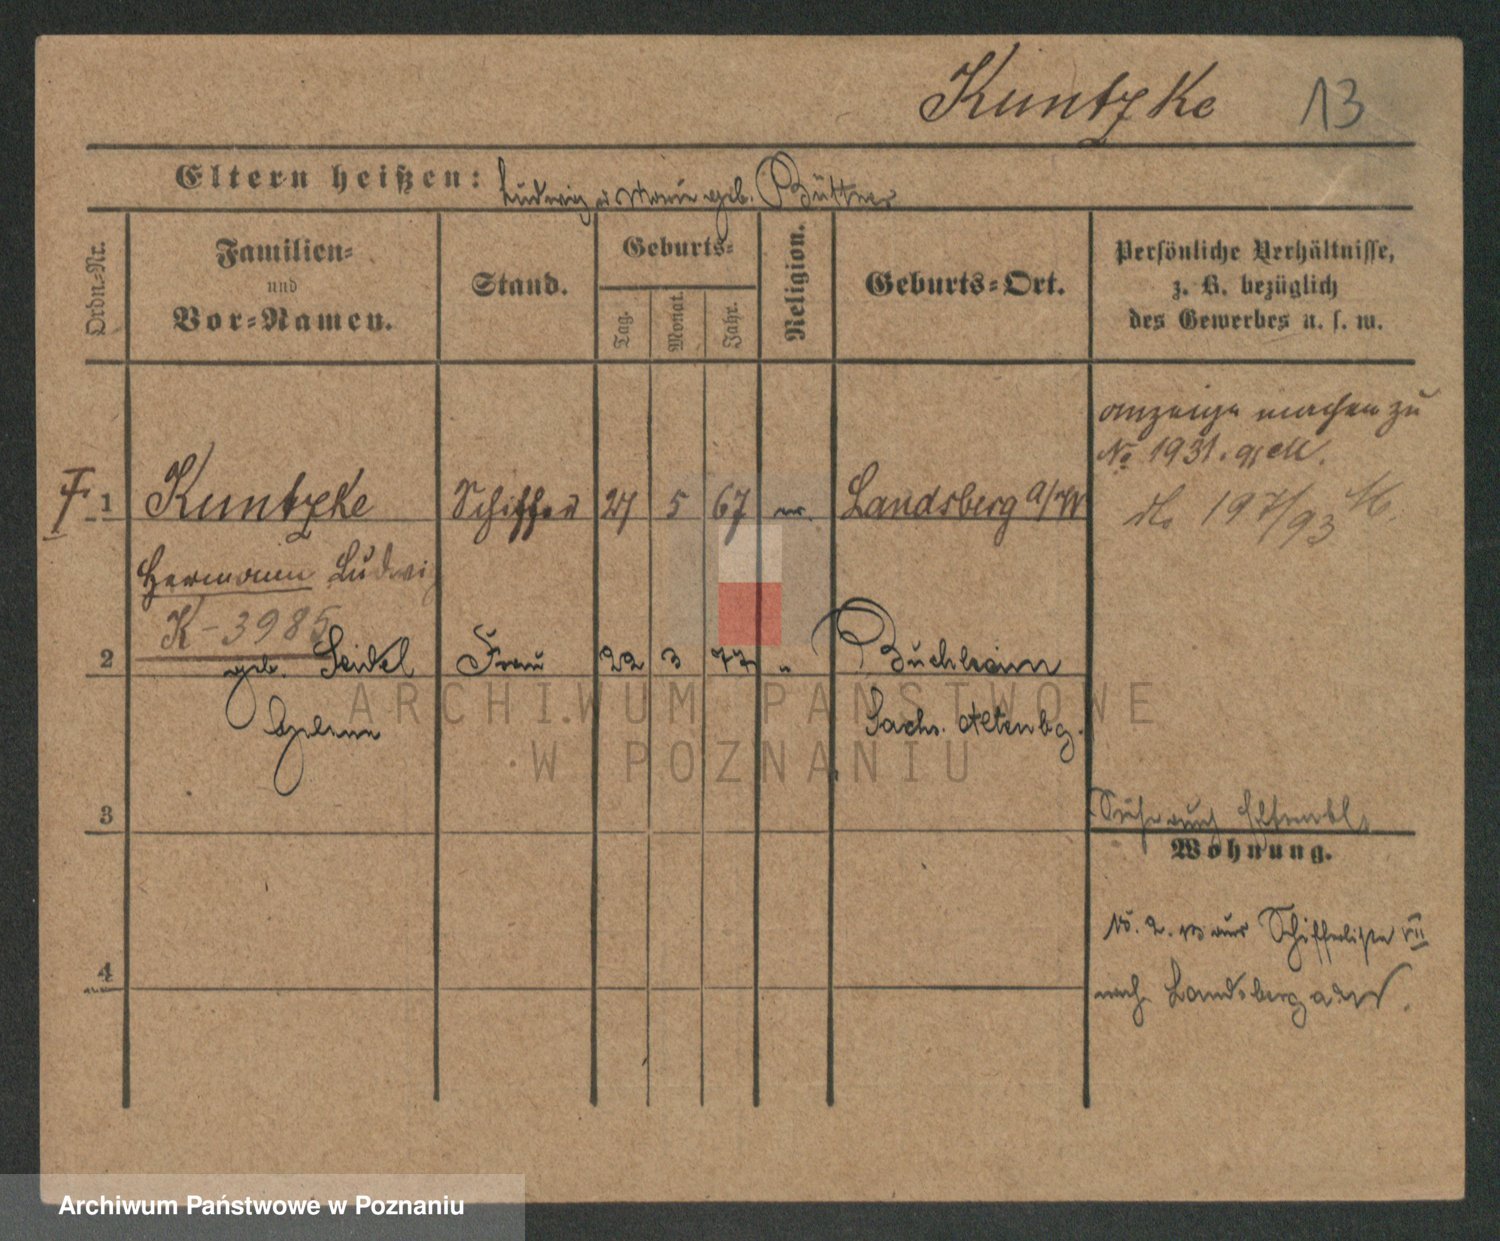 Kuntzke 13
Eltern heißen: Ludwig u Marie geb. Büttner
Ordn.-Nr.
Familien=
und
Vor=Namen.
Stand.
Geburts=
Tag.
Monat.
Jahr.
Religion.
Geburts=Ort.
Persönliche Verhältnisse,
z. B. bezüglich
des Gewerbes u. s. w.
anzeige machen zu
No 1931.
197/93
1 Kuntzke Schiffer 27 5 67 ev. Landsberg a/W
Hermann Ludwig
K-3985
2 geb. Seidel Frau 22 3 77 "
Helene Sachs. Altenbg.
3
Wohnung.
Schifferliste VII
4
nach Landsberg
ARCHIWUM PAŃSTWOWE
W POZNANIU
Archiwum Państwowe w Poznaniu